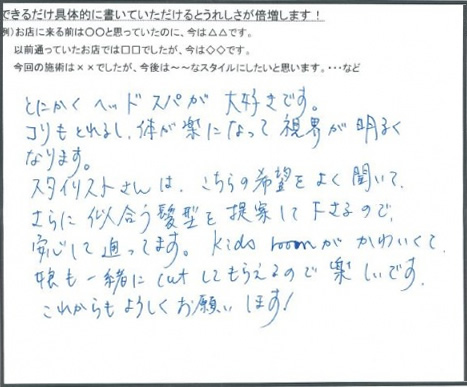 できるだけ具体的に書いていただけるとうれしさが倍増します！
例）お店に来る前は〇〇と思っていたのに、今は△△です。
以前通っていたお店では□□でしたが、今は◇◇です。
今回の施術は××でしたが、今後は～～なスタイルにしたいと思います。・・・など
とにかくヘッドスパが大好きです。
コリもとれるし、体が楽になって視界が明るく
なります。
スタイリストさんは、こちらの希望をよく聞いて、
さらに似合う髪型を提案して下さるので、
安心して通ってます。Kids roomがかわいくて、
娘も一緒にcutしてもらえるので楽しいです。
これからもよろしくお願いします！